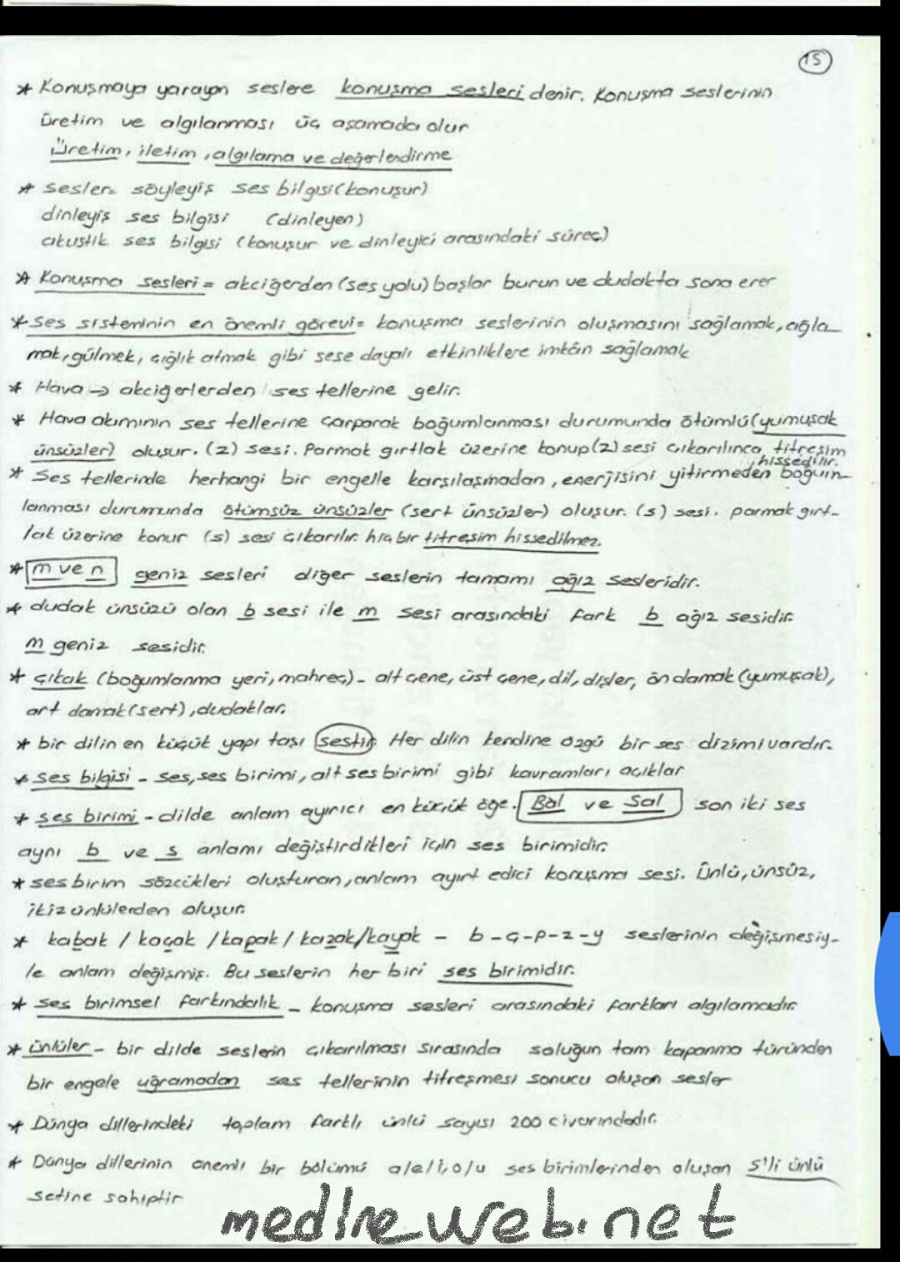 15
* Konuşmaya yarayan seslere konuşma sesleri denir. Konuşma seslerinin
üretim ve algılanması üç aşamada olur
Üretim, iletim, algılama ve değerlendirme
* sesler= söyleyiş ses bilgisi (konuşur)
dinleyiş ses bilgisi (dinleyen)
akustik ses bilgisi (konuşur ve dinleyici arasındaki süreç)
* Konuşma sesleri = akciğerden (ses yolu) başlar burun ve dudakta sona erer
* Ses sisteminin en önemli görevi= konuşma seslerinin oluşmasını sağlamak, ağla_
mak, gülmek, çığlık atmak gibi sese dayalı etkinliklere imkân sağlamak
* Hava → akciğerlerden ses tellerine gelir.
* Hava akımının ses tellerine çarparak boğumlanması durumunda ötümlü (yumuşak
ünsüzler) oluşur. (z) sesi. Parmak gırtlak üzerine konup (z) sesi çıkarılınca titreşim
hissedilir.
* Ses tellerinde herhangi bir engelle karşılaşmadan, enerjisini yitirmeden boğum-
lanması durumunda ötümsüz ünsüzler (sert ünsüzler) oluşur. (s) sesi. parmak gırt-
lak üzerine konur (s) sesi çıkarılır hiç bir titreşim hissedilmez.
* m ve n geniz sesleri diğer seslerin tamamı ağız sesleridir.
* dudak ünsüzü olan b sesi ile m sesi arasındaki fark b ağız sesidir.
m geniz sesidir.
* çıkak (boğumlanma yeri, mahreç) - alt çene, üst çene, dil, dişler, ön damak (yumuşak),
art damak (sert), dudaklar.
* bir dilin en küçük yapı taşı sestir. Her dilin kendine özgü bir ses dizimi vardır.
* ses bilgisi - ses, ses birimi, alt ses birimi gibi kavramları açıklar
* ses birimi - dilde anlam ayırıcı en küçük öğe. Bal ve Sal son iki ses
aynı b ve s anlamı değiştirdikleri için ses birimidir.
* ses birim sözcükleri oluşturan, anlam ayırt edici konuşma sesi. Ünlü, ünsüz,
ikiz ünlülerden oluşur.
* kabak / kaçak / kapak / kazak / kayak - b-ç-p-z-y seslerinin değişmesiy-
le anlam değişmiş. Bu seslerin her biri ses birimidir.
* ses birimsel farkındalık - konuşma sesleri arasındaki farkları algılamadır.
* ünlüler - bir dilde seslerin çıkarılması sırasında soluğun tam kapanma türünden
bir engele uğramadan ses tellerinin titreşmesi sonucu oluşan sesler
* Dünya dillerindeki toplam farklı ünlü sayısı 200 civarındadır.
* Dünya dillerinin önemli bir bölümü a/e/i, o/u ses birimlerinden oluşan 5'li ünlü
setine sahiptir
medineweb.net